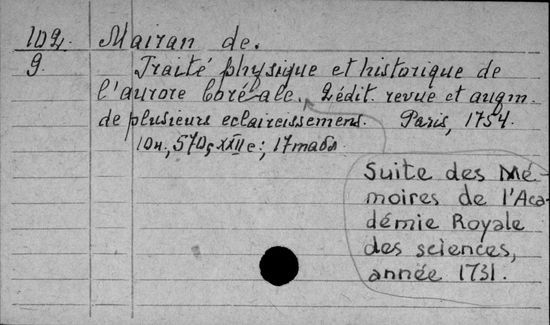 102 Mairan de.
9. Traité physique et historique de
l'aurore boréale. 2 édit. revue et augm.
de plusieurs eclaircissemens. Paris, 1754.
10н., 570, XXII с.; 17 табл
Suite des Mé-
moires de l'Aca-
démie Royale
des sciences,
année 1731.